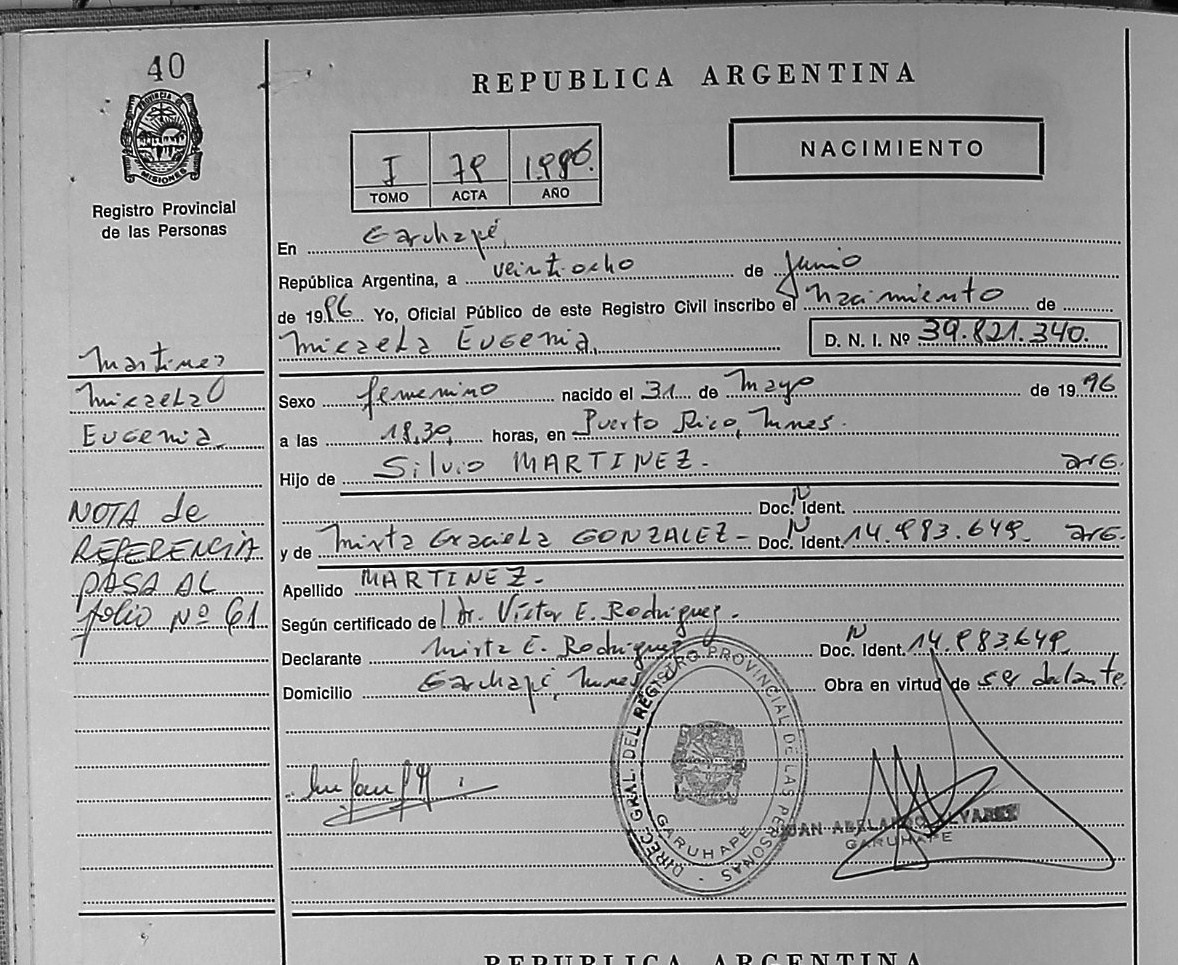 40
PROVINCIA DE
MISIONES
Registro Provincial
de las Personas
REPUBLICA ARGENTINA
NACIMIENTO
I 79 1.996.
TOMO ACTA AÑO
En Garuhapé,
República Argentina, a veintiocho de Junio
de 1996 Yo, Oficial Público de este Registro Civil inscribo el Nacimiento de
Micaela Eugenia, D. N. I. Nº 39.821.340.
Sexo femenino nacido el 31 de Mayo de 1996
a las 18,30, horas, en Puerto Rico, Mnes.
Hijo de Silvio MARTINEZ. arg.
Doc. N Ident.
y de Mirta Graciela GONZALEZ - Doc. N Ident. 14.983.649. arg.
Apellido MARTINEZ -
Según certificado del Dr. Víctor E. Rodriguez.
Declarante Mirta E. Rodriguez Doc. N Ident. 14.983.649.
Domicilio Garuhapé, Mnes Obra en virtud de
Martinez
Micaela
Eugenia.
NOTA de
REFERENCIA
PASA AL
folio Nº 61
DIREC. GRAL. DEL REGISTRO PROVINCIAL DE LAS PERSONAS -
GARUHAPE
JUAN ABELARDO ALVAREZ
GARUHAPE
REPUBLICA ARGENTINA